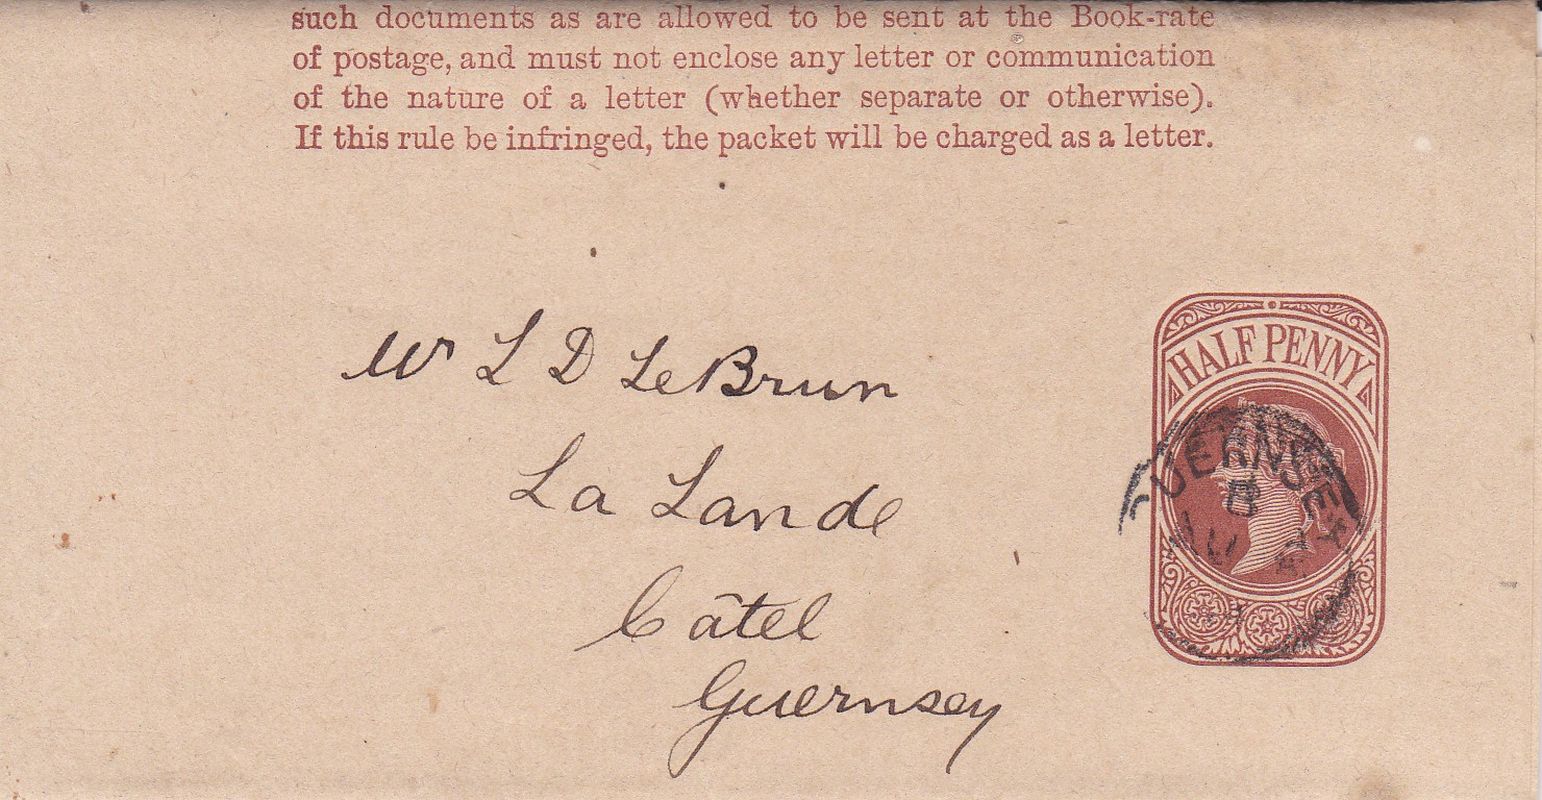 such documents as are allowed to be sent at the Book-rate
of postage, and must not enclose any letter or communication
of the nature of a letter (whether separate or otherwise).
If this rule be infringed, the packet will be charged as a letter.
HALF PENNY
GUERNSEY
B
Mr L D LeBrun
La Lande
Câtel
Guernsey